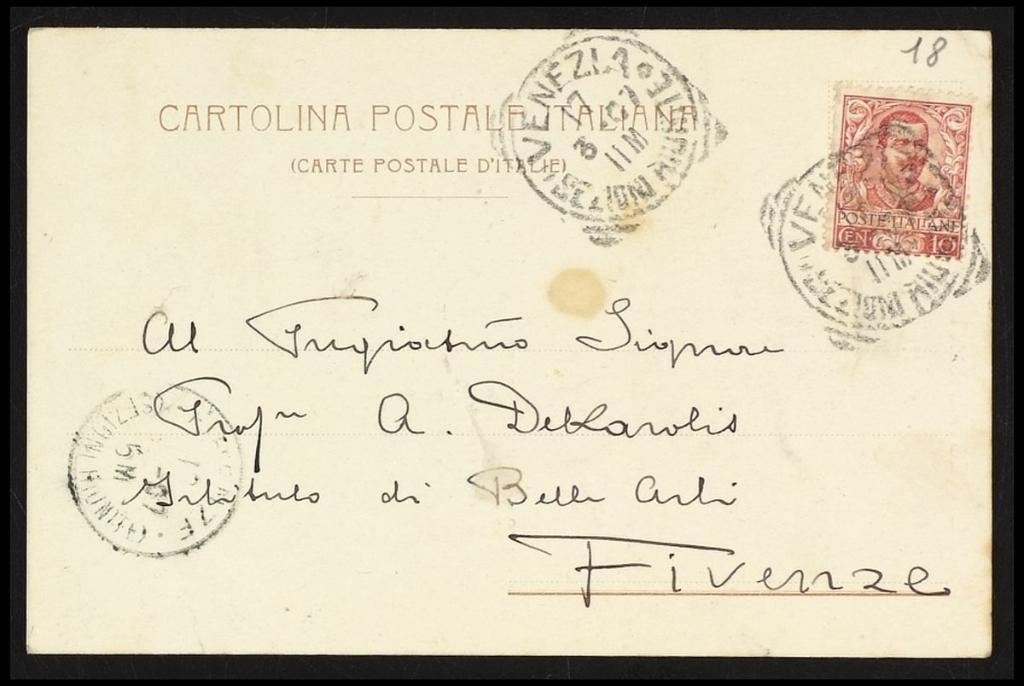 18
CARTOLINA POSTALE ITALIANA
(CARTE POSTALE D'ITALIE)
VENEZIA
11 M
POSTE ITALIANE
CEN 10
VEN
11 M
Al Pregiatmo Signore
Profre A. DeKarolis
Istituto di Belle Arti
Firenze
5 M